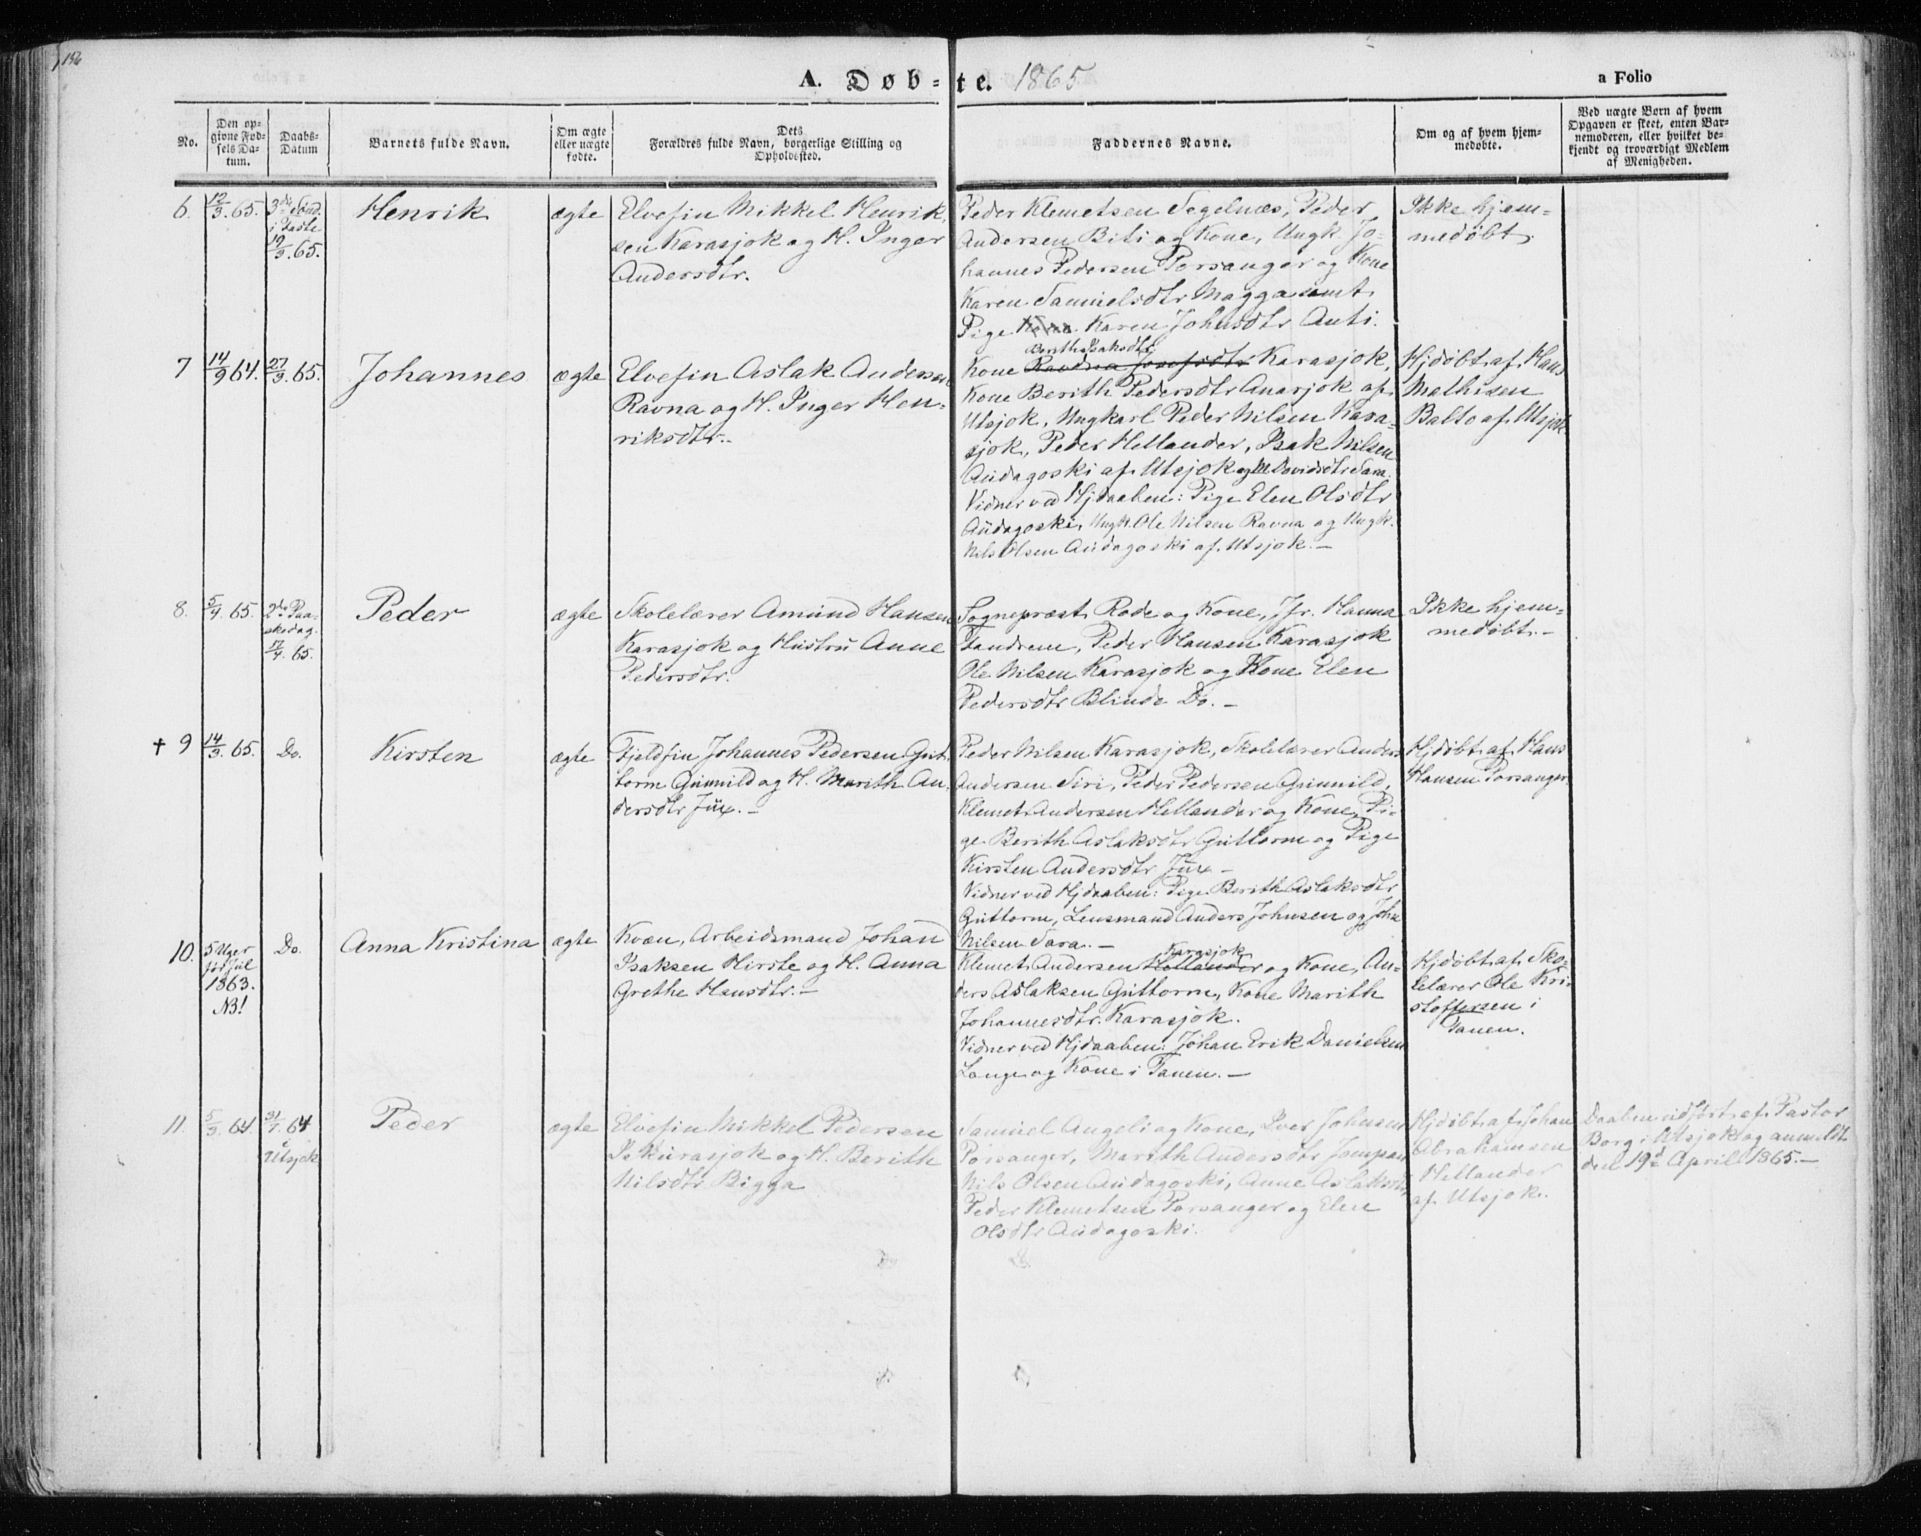 196
A. Døb-te. 1865
a Folio
No.
Den op-
givne Fød-
sels Da-
tum.
Daabs-
Datum
Barnets fulde Navn.
Om ægte
eller uægte
fødte.
Dets
Forældres fulde Navn, borgerlige Stilling og
Opholdssted.
Faddernes Navne.
Om og af hvem hjem-
medøbte.
Ved uægte Børn af hvem
Opgaven er skeet, enten Bar-
nemoderen, eller hvilket be-
kjendt og troværdigt Medlem
af Menigheden.
6.
12/3. 65.
3die Sønd.
i Faste
19/3. 65.
Henrik
ægte
Elvefin Mikkel Henrik-
sen Karasjok og H. Inger
Andersdtr.
Peder Klemetsen Segelnæs, Peder
Andersen Biti og Kone, Ungk. Jo-
hannes Pedersen Porsanger og Kone
Karen Samuelsdtr Magga samt
Pige Karen Johnsdtr Anti.
Ikke hjem-
medøbt.
7
14/9 64.
27/3. 65.
Johannes
ægte
Elvefin Aslak Andersen
Ravna og H. Inger Hen-
riksdtr.
Berith Isaksdtr
Kone Ravdna Josefsdtr Karasjok,
Kone Berith Pedersdtr Anarjok af
Utsjok, Ungkarl Peder Nilsen Kara-
sjok, Peder Hellander, Isak Nilsen
Audagoski af Utsjok og M. Davidsdtr Sara.
Vidner ved Hjdaaben: Pige Elen Olsdtr
Audagoski, Ungk. Ole Nilsen Ravna og Ungk.
Nils Olsen Audagoski af Utsjok. —
Hjdøbt af Hans
Mathisen
Balto af Utsjok
8.
5/4. 65.
2den Paa-
skedag.
17/4. 65.
Peder
ægte
Skolelærer Amund Hansen
Karasjok og Hustru Anne
Pedersdtr.
Sognepræst Rode og Kone, Jfr. Hanna
Tandrem, Peder Hansen Karasjok
Ole Nilsen Karasjok og Kone Elen
Pedersdtr Blinde Do. —
Ikke hjem-
medøbt. —
† 9
14/3. 65.
Do.
Kirsten
ægte
Fjeldfin Johannes Pedersen Gut-
torm Gunnild og H. Marith An-
dersdtr Jux. —
Peder Nilsen Karasjok, Skolelærer Anders
Andersen Siri, Peder Pedersen Gunnild,
Klemet Andersen Hellander og Kone, Pi-
ge Berith Aslaksdtr Guttorm og Pige
Kirsten Andersdtr Jux —
Vidner ved Hjdaaben: Pige Berith Aslaksdtr
Guttorm, Lensmand Anders Johnsen og John
Nilsen Sara. —
Hjdøbt af Hans
Hansen Porsanger.
10.
5 Uger
før Jul
1863.
NB!
Do.
Anna Kristina
ægte
Kvæn, Arbeidsmand Johan
Isaksen Hirste og H. Anna
Grethe Hansdtr. —
Karasjok
Klemet Andersen Hellander og Kone, An-
ders Aslaksen Guttorm, Kone Marith
Johannesdtr. Karasjok.
Vidner ved Hjdaaben: Johan Erik Danielsen
Lange og Kone i Tanen. —
Hjdøbt af Sko-
lelærer Ole Kri-
stoffersen i
Tanen.
11.
5/3. 64.
31/7. 64
i
Utsjok
Peder
ægte
Elvefin Mikkel Pedersen
P. Karasjok og H. Berith
Nilsdtr Bigga
Samuel Angeli og Kone, Iver Johnsen
Porsanger, Marith Andersdtr Jompan
Nils Olsen Audagoski, Anne Aslaksdtr,
Peder Klemetsen Porsanger og Elen
Olsdtr Audagoski.
Hjdøbt af Johan
Abrahamsen
Hellander
af Utsjok.
Daaben udført af Pastor
Borg i Utsjok og anmeldt
deel 19de April 1865. —